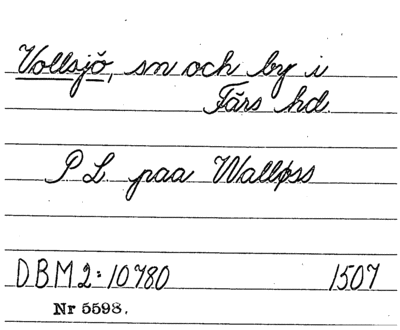 Vollsjö, sn och by i
Färs hd.
P L paa Walløss
DBM2:10780 1507
Nr 5598.